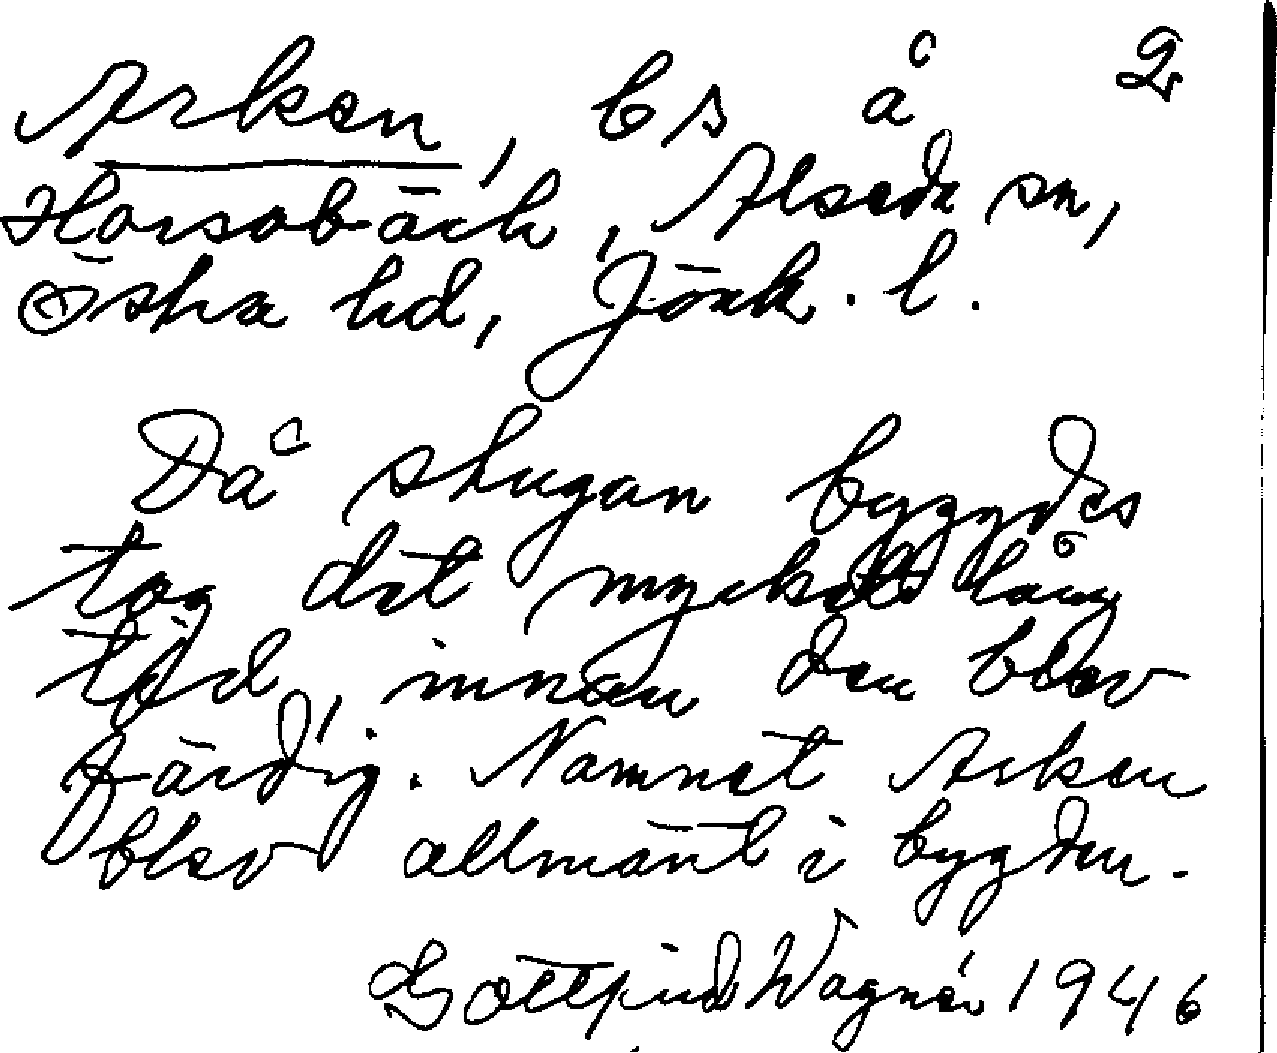 Arken, bs å 2
Horsabäck, Alseda sn,
Östra hd, Jönk. l.
Då stugan byggdes
tog det mycket lång
tid, innan den blev
färdig. Namnet Arken
blev allmänt i bygden.
Gottfrid Wagnér 1946